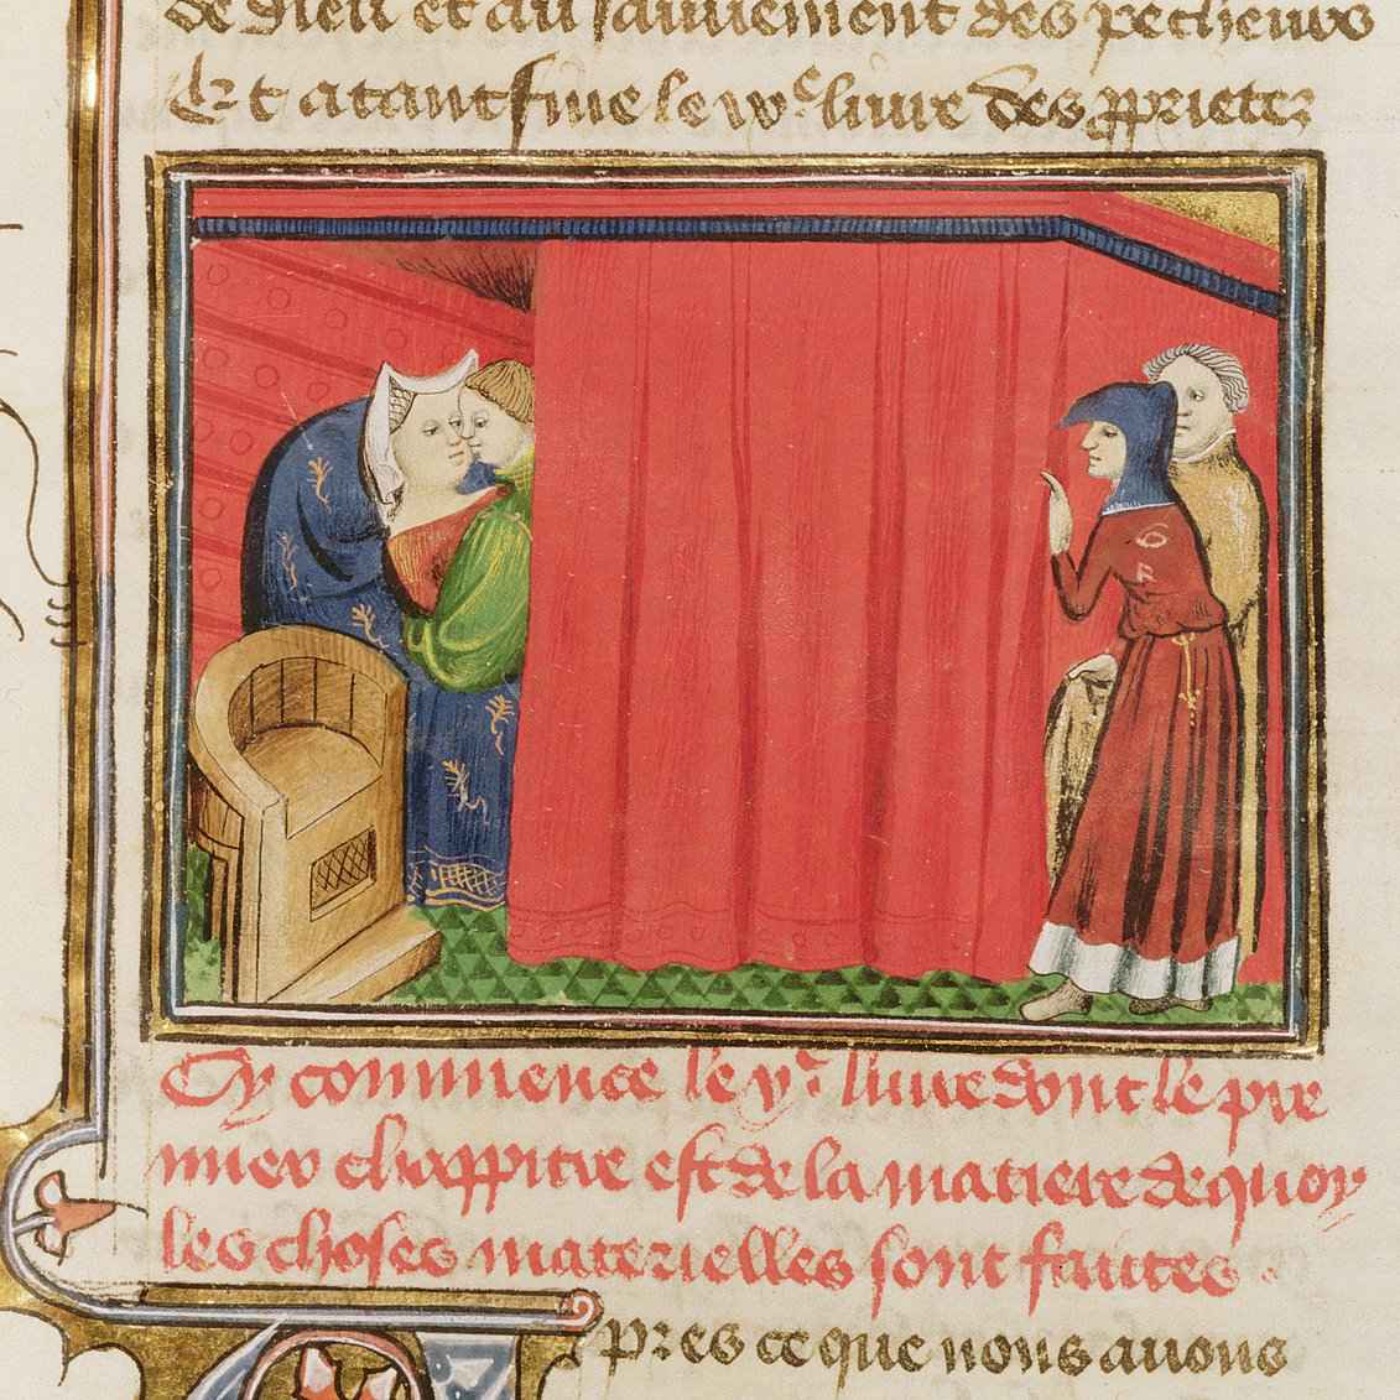 de dieu et au sauuement des pecheurs
Et atant fine le ixe liure des pprietez
Cy commence le xe liure dont le pre
mier chappitre est de la matiere de quoy
les choses materielles sont faittes.
pres ce que nous auons